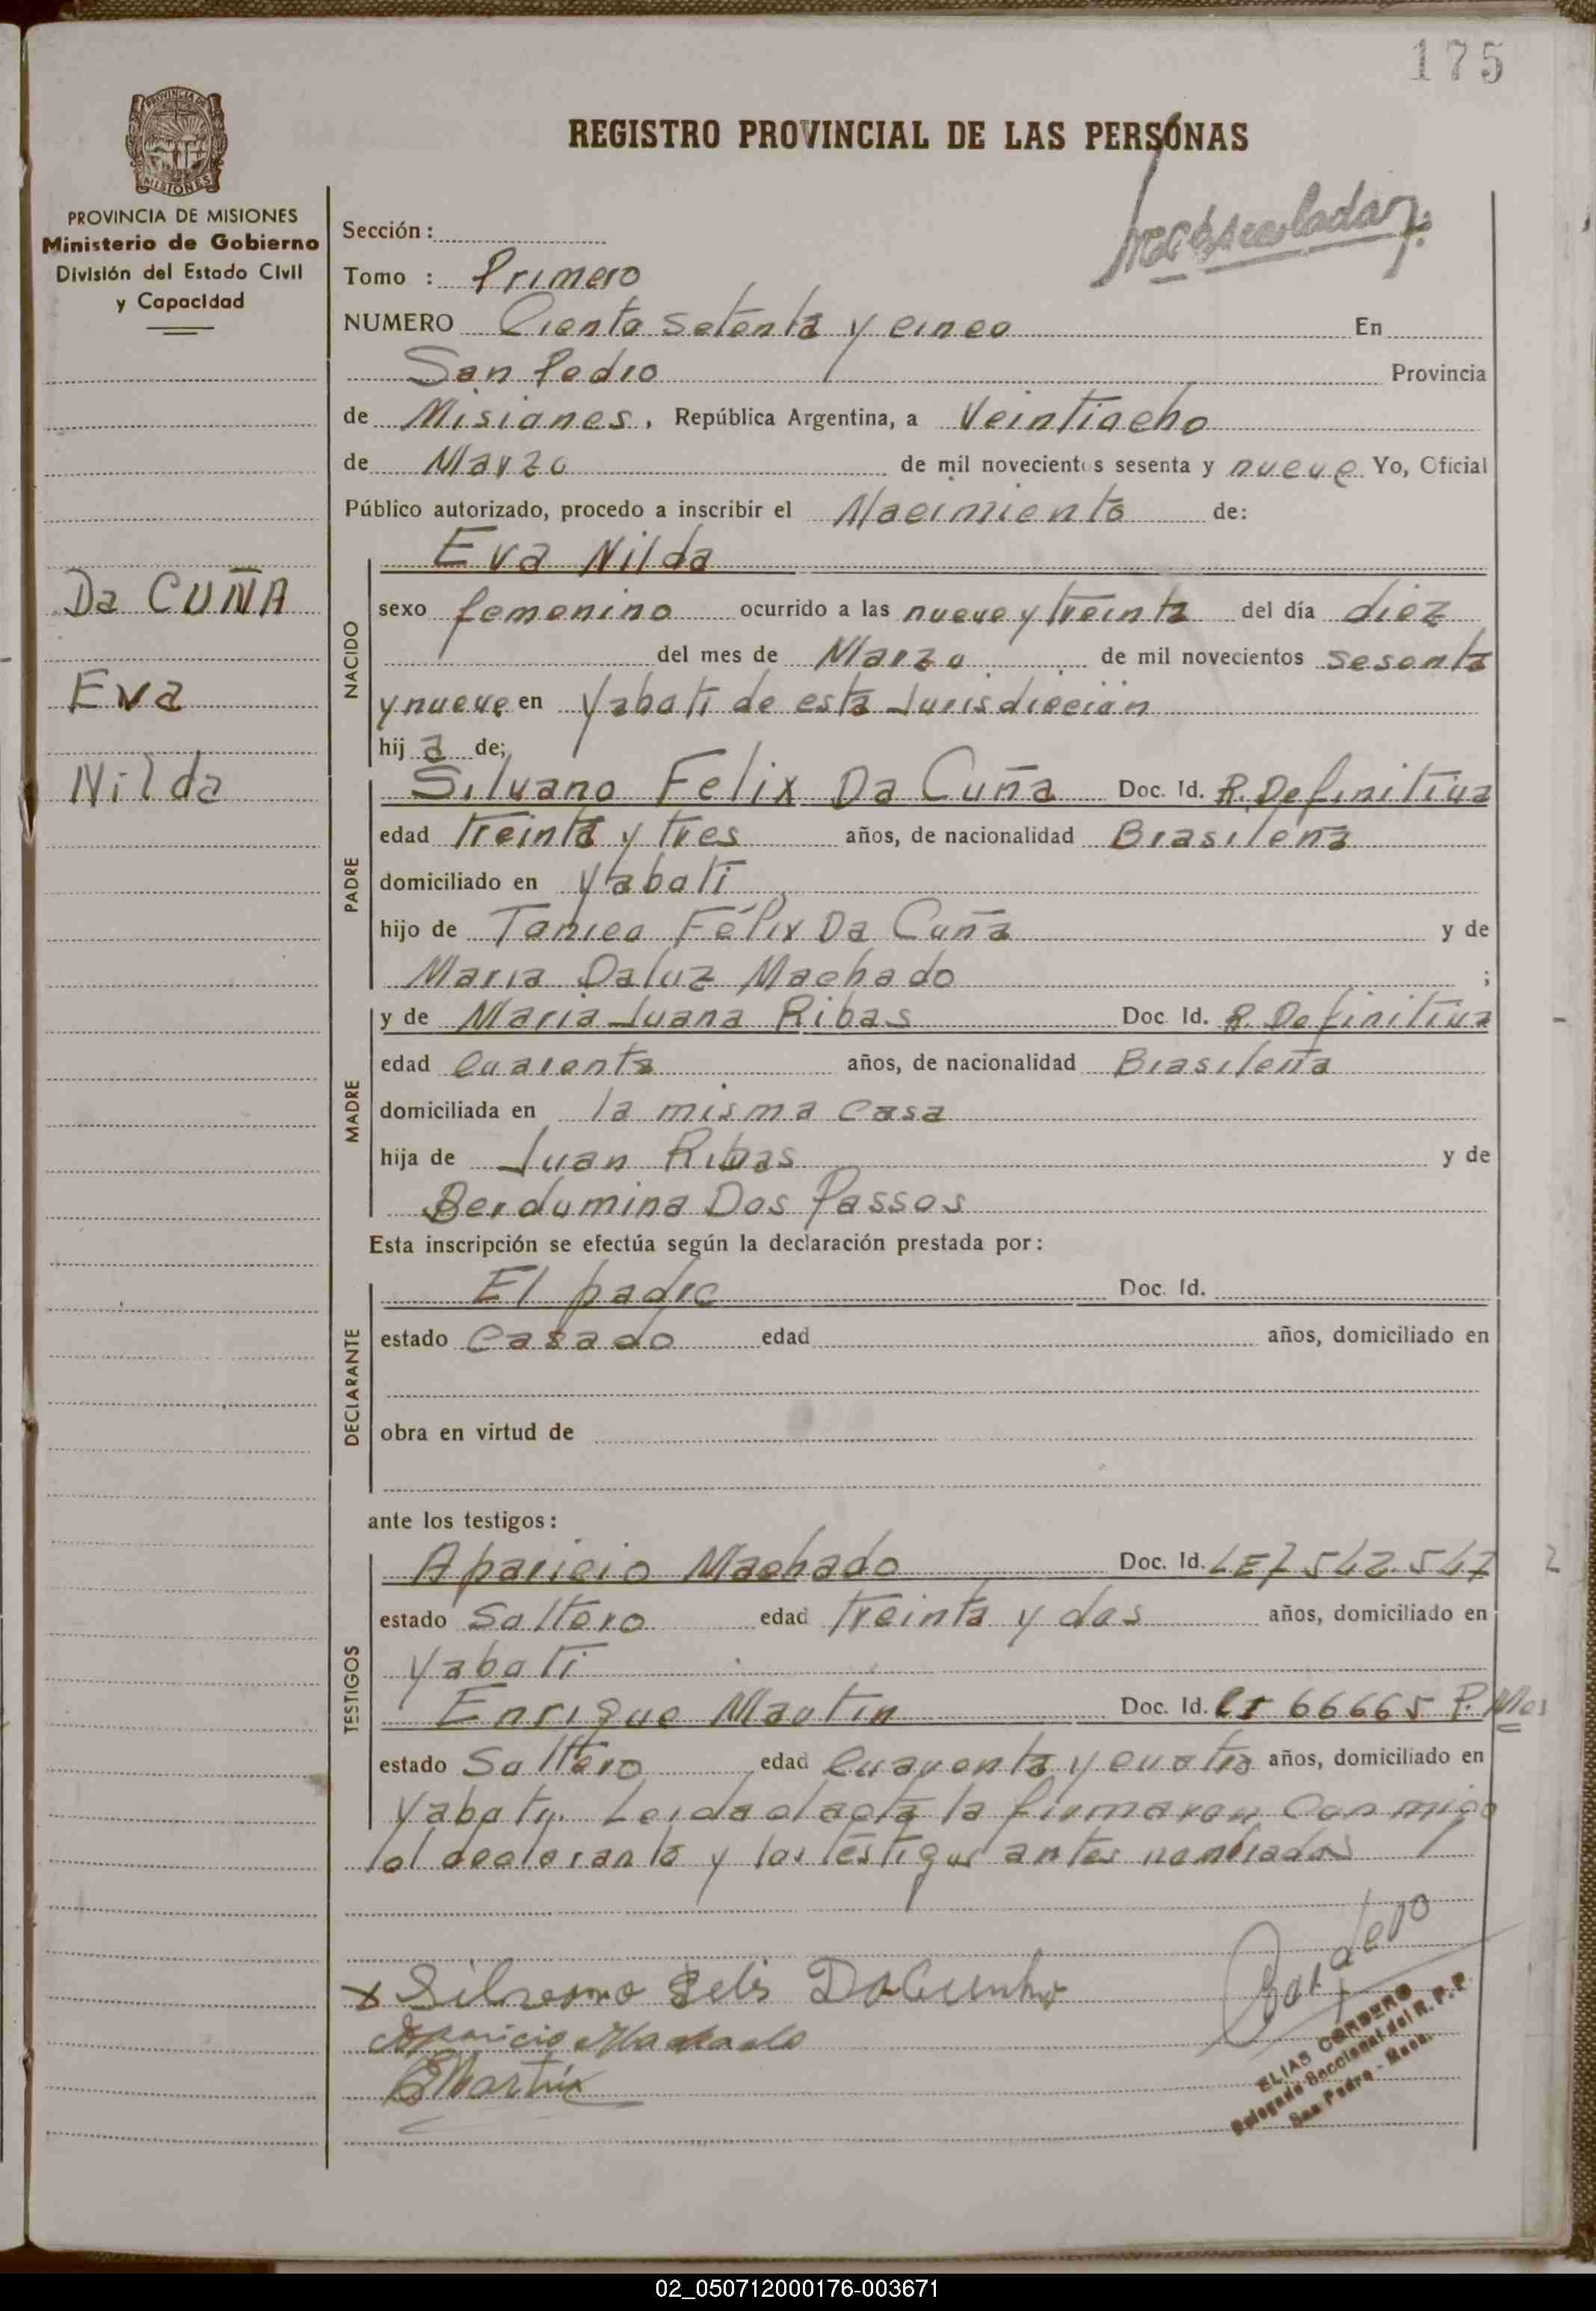 175
REGISTRO PROVINCIAL DE LAS PERSONAS
PROVINCIA DE MISIONES
MISIONES
PROVINCIA DE MISIONES
Ministerio de Gobierno
División del Estado Civil
y Capacidad
Da CUÑA
Eva
Nilda
Sección:
Tomo : Primero
NUMERO Ciento setenta y cinco En
San Pedro Provincia
de Misiones, República Argentina, a Veintiocho
de Marzo de mil novecientos sesenta y nueve Yo, Oficial
Público autorizado, procedo a inscribir el Nacimiento de:
NACIDO
Eva Nilda
sexo femenino ocurrido a las nueve y treinta del día diez
del mes de Marzo de mil novecientos sesenta
y nueve en Yabotí de esta Jurisdicción
hija de;
PADRE
Silvano Felix Da Cuña Doc. Id. R. Definitiva
edad treinta y tres años, de nacionalidad Brasileña
domiciliado en Yaboti
hijo de Félix Da Cuña y de
Maria Daluz Machado ;
MADRE
y de Maria Juana Ribas Doc Id. R. Definitiva
edad Cuarenta años, de nacionalidad Brasileña
domiciliada en la misma Casa
hija de Juan Ribas y de
Berdumina Dos Passos
Esta inscripción se efectúa según la declaración prestada por:
DECLARANTE
El padre Doc. Id.
estado Casado edad años, domiciliado en
obra en virtud de
ante los testigos:
TESTIGOS
Aparicio Machado Doc. Id. LE 7 542.547 2
estado Soltero edad treinta y dos años, domiciliado en
Yaboti
Enrique Martin Doc. Id. CI 66665 P. Mes
estado Soltero edad Cuarenta y cuatro años, domiciliado en
Yaboty. Leida el acta la firmaron Conmigo
el declarante y los testigos antes nombrados
Silvano Felis DaCunha
Aparicio Machado
EMartin
Cordero
ELIAS CORDERO
Delegado Seccional del R. P. P.
San Pedro - Mnes.
02_050712000176-003671